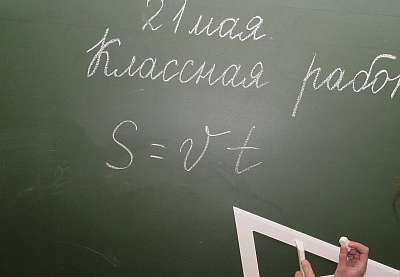 21 мая.
Классная рабо
S = v t